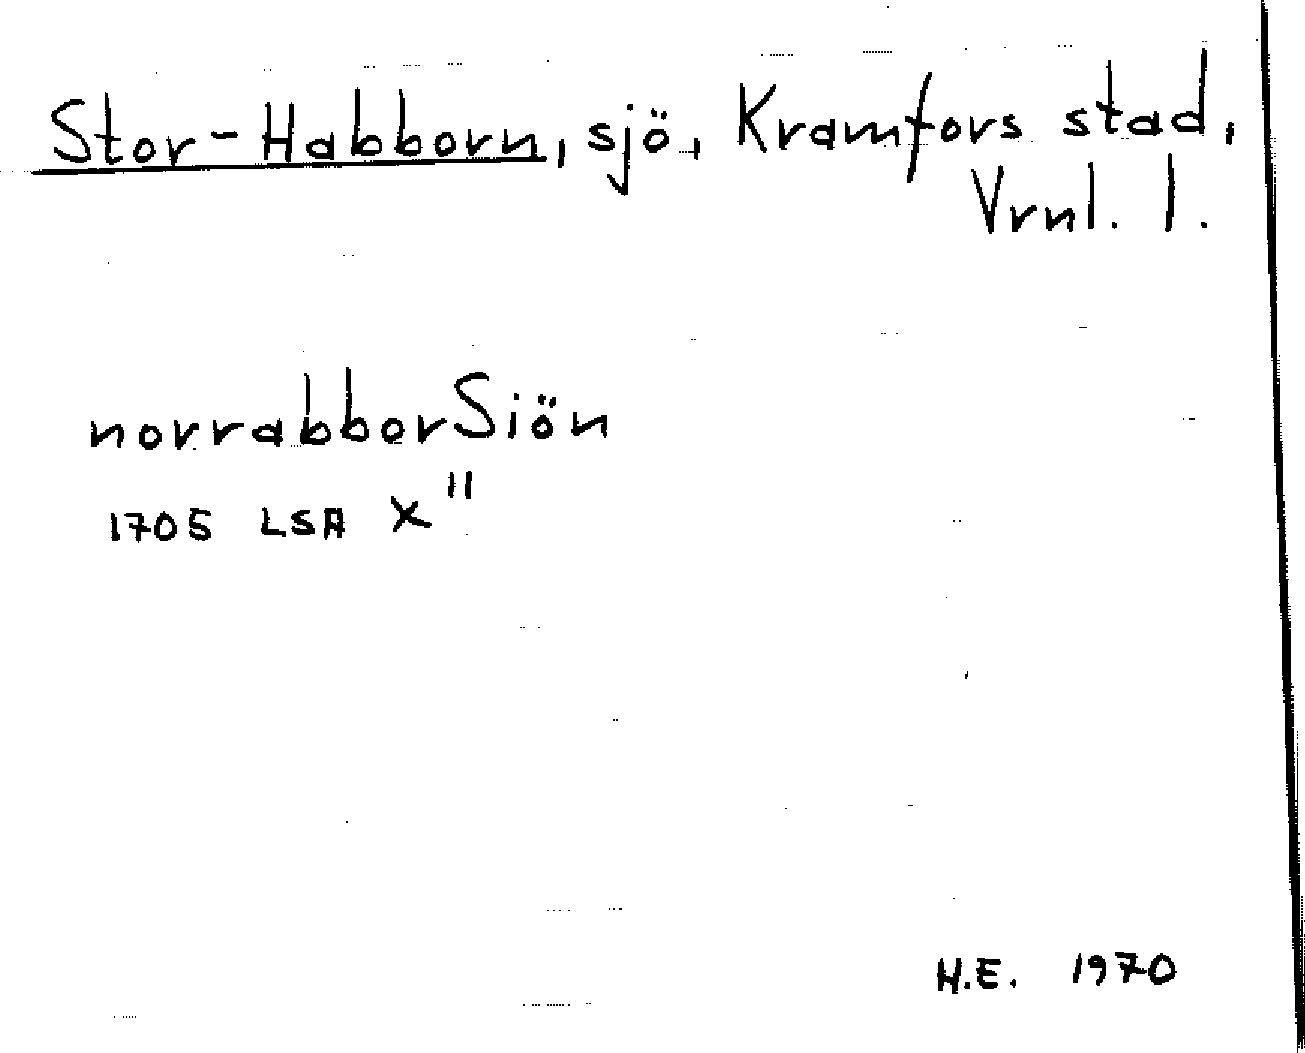 Stor-Habborn, sjö, Kramfors stad,
Vrnl. l.
norrabborSiön
1705 LSA X"
H.E. 1970